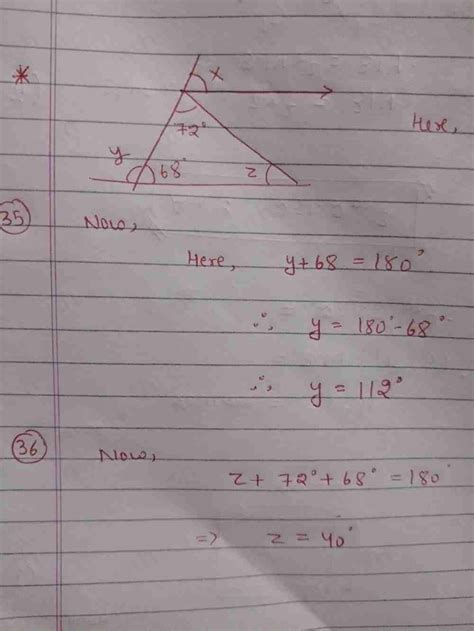 *
x
72°
Here,
y
68°
z
35
Now,
Here, y+68 = 180°
∴, y = 180°-68°
∴, y = 112°
36
Now,
z + 72°+68° = 180°
=> z = 40°